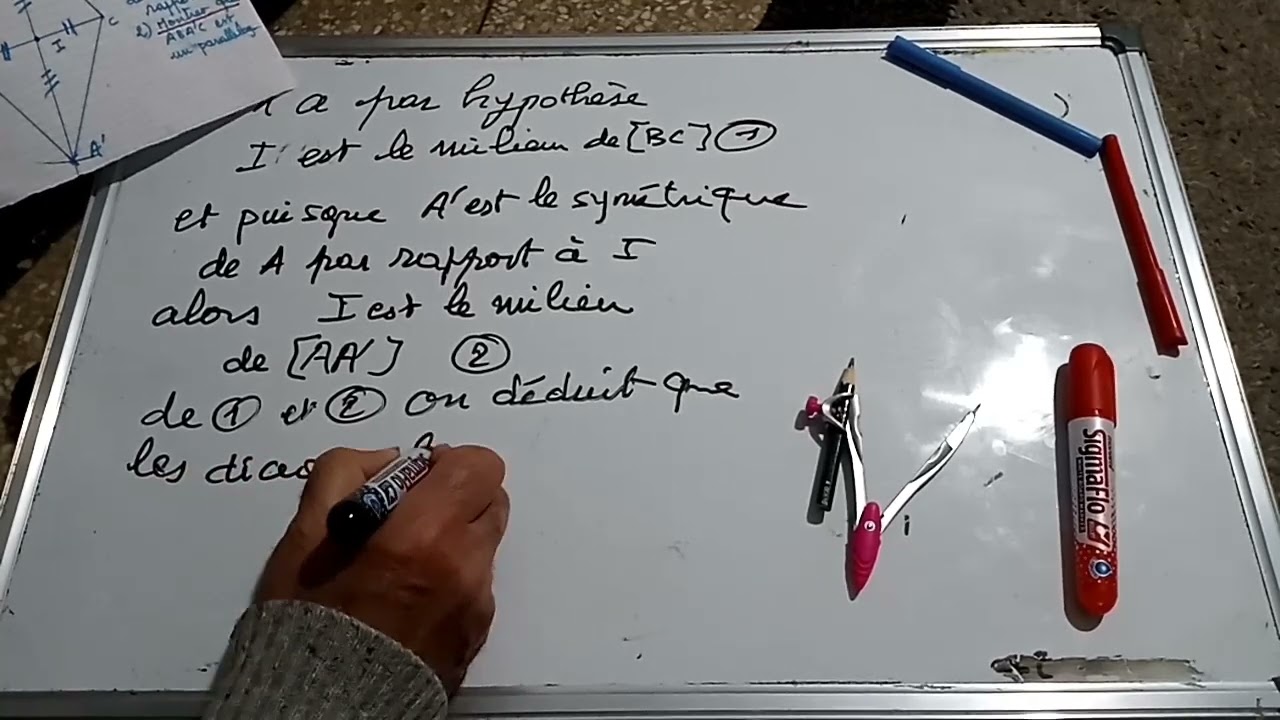 rappo
2) Montrer que
ABA'C est
un parallélog
I
C
A'
a par hypothèse
I est le milieu de [BC] ①
et puisque A' est le symétrique
de A par rapport à I
alors I est le milieu
de [AA'] ②
de ① et ② on déduit que
les diag
SigmaFlo